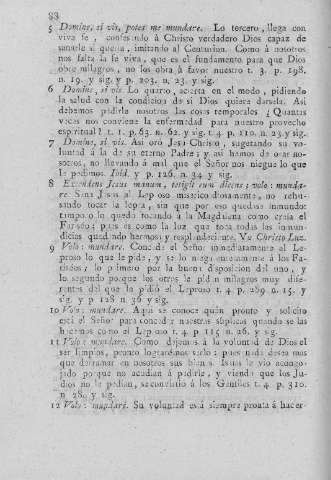 88
5 Domine, si vis, potes me mundare. Lo tercero, llega con
viva fe, confesando á Christo verdadero Dios capaz de
sanarle si queria, imitando al Centurion. Como á nosotros
nos falta la fe viva, que es el fundamento para que Dios
obre milagros, no los obra á favor nuestro t. 3. p. 198.
n. 19. y sig. y p. 203. n. 23. y sig.
6 Domine, si vis. Lo quarto, acierta en el modo, pidiendo
la salud con la condicion de si Dios quiere darsela. Asi
debemos pedirle nosotros las cosas temporales ¿Quantas
veces nos conviene la enfermedad para nuestro provecho
espiritual? t. 1. p. 63. n. 62. y sig. t. 4. p. 110. n. 23. y sig.
7 Domine, si vis. Asi oró Jesu Christo, sugetando su vo-
luntad á la de su eterno Padre; y asi hemos de orar no-
sotros, no llevando á mal que el Señor nos niegue lo que
le pedimos. Ibid. y p. 126. n. 34. y sig.
8 Extendens Jesus manum, tetigit eum dicens; volo: munda-
re. Sana Jesus al Leproso misericordiosamente, no rehu-
sando tocar la lepra, sin que por eso quedase inmundo:
tampoco lo quedó tocando á la Magdalena como creia el
Fariseo; pues es como la luz que toca todas las inmun-
dicias quedando hermosa y resplandeciente. V. Christo Luz.
9 Volo: mundare. Concede el Señor inmediatamente al Le-
proso lo que le pide, y se lo niega enteramente á los Fa-
riséos; lo primero por la buena disposicion del uno, y
lo segundo porque los otros le piden milagros muy dife-
rentes del que la pidió el Leproso t. 4. p. 289. n. 15. y
sig. y p 128 n. 36 y sig.
10 Volo: mundare. Aqui se conoce quán pronto y solícito
está el Señor para conceder nuestras súplicas quando se las
hacemos como el Leproso t. 4. p. 115 n. 26. y sig.
11 Volo: mundare. Como dejemos á la voluntad de Dios el
ser limpios, pronto lograrémos verlo; pues nada desea mas
que derramar en nosotros sus bienes. Busca le vió acongo-
jado porque no acudian á pedirle, y viendo que los Ju-
dios no le pedian, se convirtió á los Gentiles t. 4. p. 310.
n. 28. y sig.
12 Volo: mundare. Su voluntad está siempre pronta á hacer-